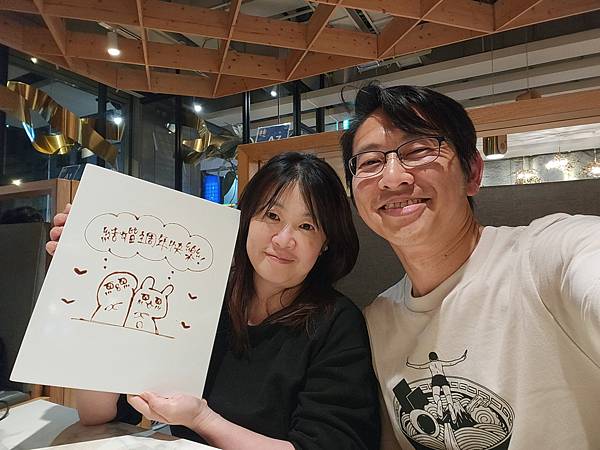 結婚週年快樂!
A7